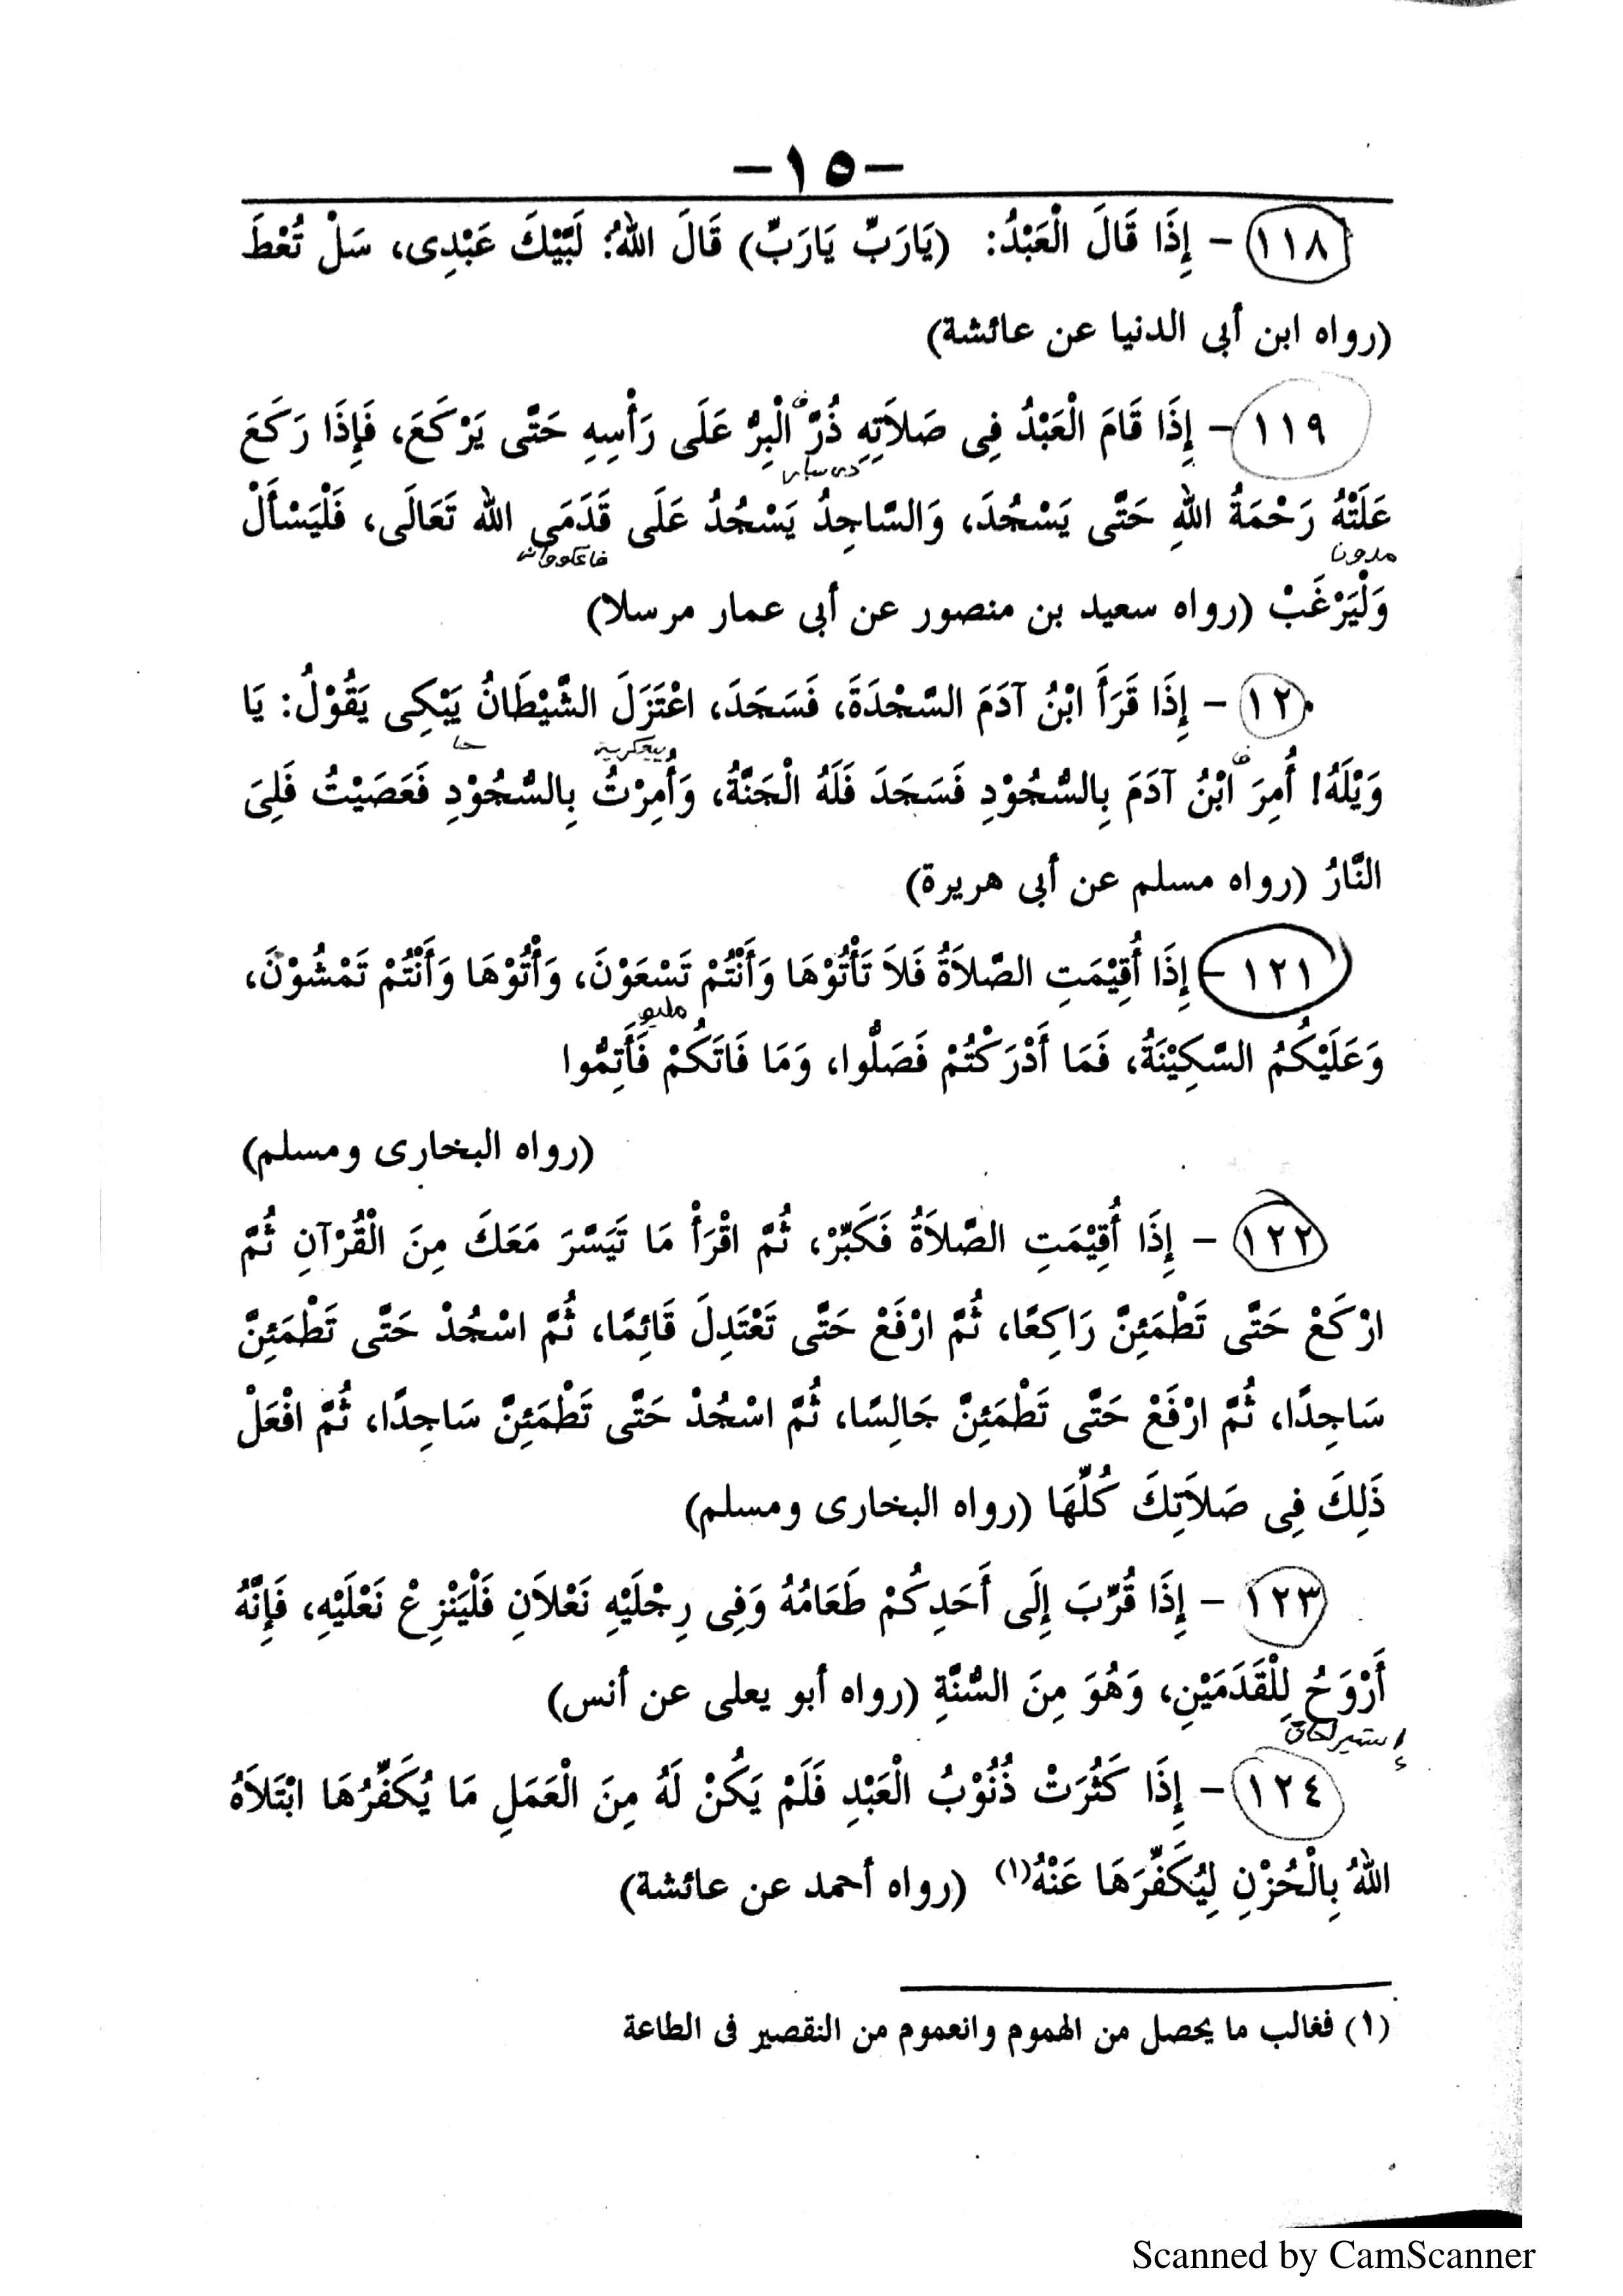 -١٥-
١١٨ - إِذَا قَالَ الْعَبْدُ: (يَارَبِّ يَارَبِّ) قَالَ اللهُ: لَبَّيْكَ عَبْدِى، سَلْ تُعْطَ
(رواه ابن أبى الدنيا عن عائشة)
١١٩ - إِذَا قَامَ الْعَبْدُ فِى صَلاَتِهِ ذُرَّ الْبِرُّ عَلَى رَأْسِهِ حَتَّى يَرْكَعَ، فَإِذَا رَكَعَ
عَلَتْهُ رَحْمَةُ اللهِ حَتَّى يَسْجُدَ، وَالسَّاجِدُ يَسْجُدُ عَلَى قَدَمَىِ الله تَعَالَى، فَلْيَسْأَلْ
وَلْيَرْغَبْ (رواه سعيد بن منصور عن أبى عمار مرسلا)
١٢٠ - إِذَا قَرَأَ ابْنُ آدَمَ السَّجْدَةَ، فَسَجَدَ، اعْتَزَلَ الشَّيْطَانُ يَبْكِى يَقُوْلُ: يَا
وَيْلَهُ! أُمِرَ ابْنُ آدَمَ بِالسُّجُوْدِ فَسَجَدَ فَلَهُ الْجَنَّةُ، وَأُمِرْتُ بِالسُّجُوْدِ فَعَصَيْتُ فَلِىَ
النَّارُ (رواه مسلم عن أبى هريرة)
١٢١ - إِذَا أُقِيْمَتِ الصَّلاَةُ فَلاَ تَأْتُوْهَا وَأَنْتُمْ تَسْعَوْنَ، وَأْتُوْهَا وَأَنْتُمْ تَمْشُوْنَ،
وَعَلَيْكُمُ السَّكِيْنَةُ، فَمَا أَدْرَكْتُمْ فَصَلُّوا، وَمَا فَاتَكُمْ فَأَتِمُّوا
(رواه البخارى ومسلم)
١٢٢ - إِذَا أُقِيْمَتِ الصَّلاَةُ فَكَبِّرْ، ثُمَّ اقْرَأْ مَا تَيَسَّرَ مَعَكَ مِنَ الْقُرْآنِ ثُمَّ
ارْكَعْ حَتَّى تَطْمَئِنَّ رَاكِعًا، ثُمَّ ارْفَعْ حَتَّى تَعْتَدِلَ قَائِمًا، ثُمَّ اسْجُدْ حَتَّى تَطْمَئِنَّ
سَاجِدًا، ثُمَّ ارْفَعْ حَتَّى تَطْمَئِنَّ جَالِسًا، ثُمَّ اسْجُدْ حَتَّى تَطْمَئِنَّ سَاجِدًا، ثُمَّ افْعَلْ
ذَلِكَ فِى صَلاَتِكَ كُلِّهَا (رواه البخارى ومسلم)
١٢٣ - إِذَا قُرِّبَ إِلَى أَحَدِكُمْ طَعَامُهُ وَفِى رِجْلَيْهِ نَعْلاَنِ فَلْيَنْزِعْ نَعْلَيْهِ، فَإِنَّهُ
أَرْوَحُ لِلْقَدَمَيْنِ، وَهُوَ مِنَ السُّنَّةِ (رواه أبو يعلى عن أنس)
١٢٤ - إِذَا كَثُرَتْ ذُنُوْبُ الْعَبْدِ فَلَمْ يَكُنْ لَهُ مِنَ الْعَمَلِ مَا يُكَفِّرُهَا ابْتَلاَهُ
اللهُ بِالْحُزْنِ لِيُكَفِّرَهَا عَنْهُ(١) (رواه أحمد عن عائشة)
(١) فغالب ما يحصل من الهموم وانعموم من النقصير فى الطاعة
Scanned by CamScanner